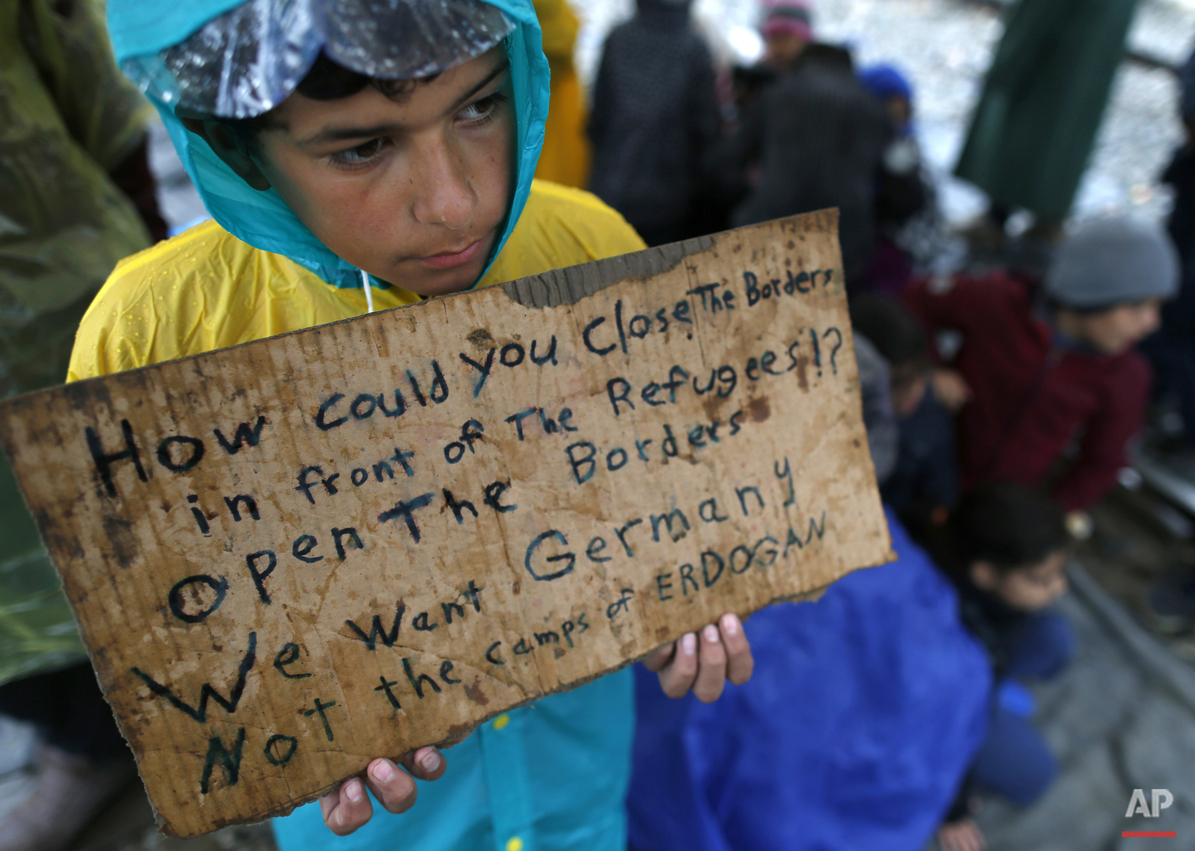 How could you Close The Borders
in front of The Refugees!?
Open The Borders
We Want Germany
Not the camps of ERDOGAN
AP